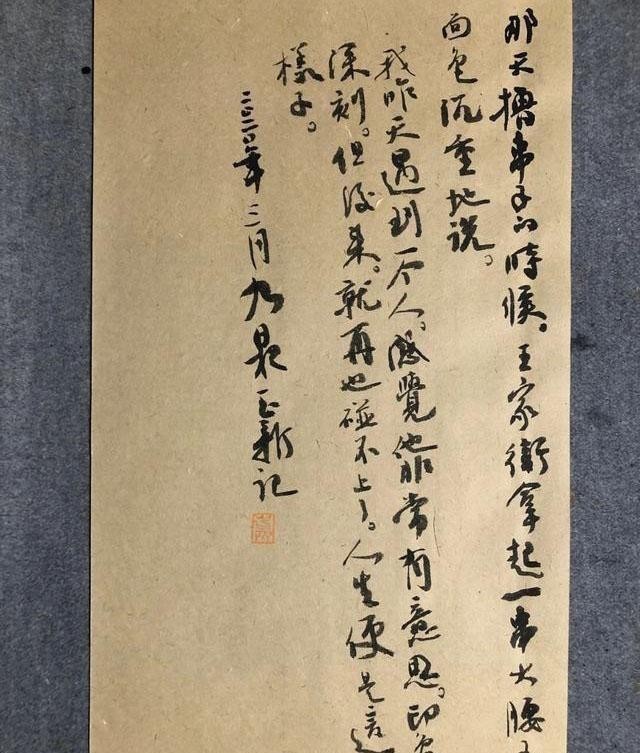 那天擼串子的時候。王家衛拿起一串大腰子
面色沉重地说。
我昨天遇到一个人。感覺他非常有意思。印象
深刻。但後来。就再也碰不上了。人生便是這
樣子。
二〇二〇年三月九泉正新记